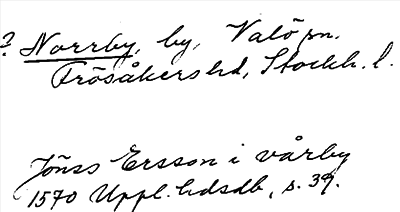 ? Norrby, by, Valö sn.
Frösåkers hd, Stockh. l.
Jönss Ersson i vårby
1570 Uppl. hdsdb, s. 39.